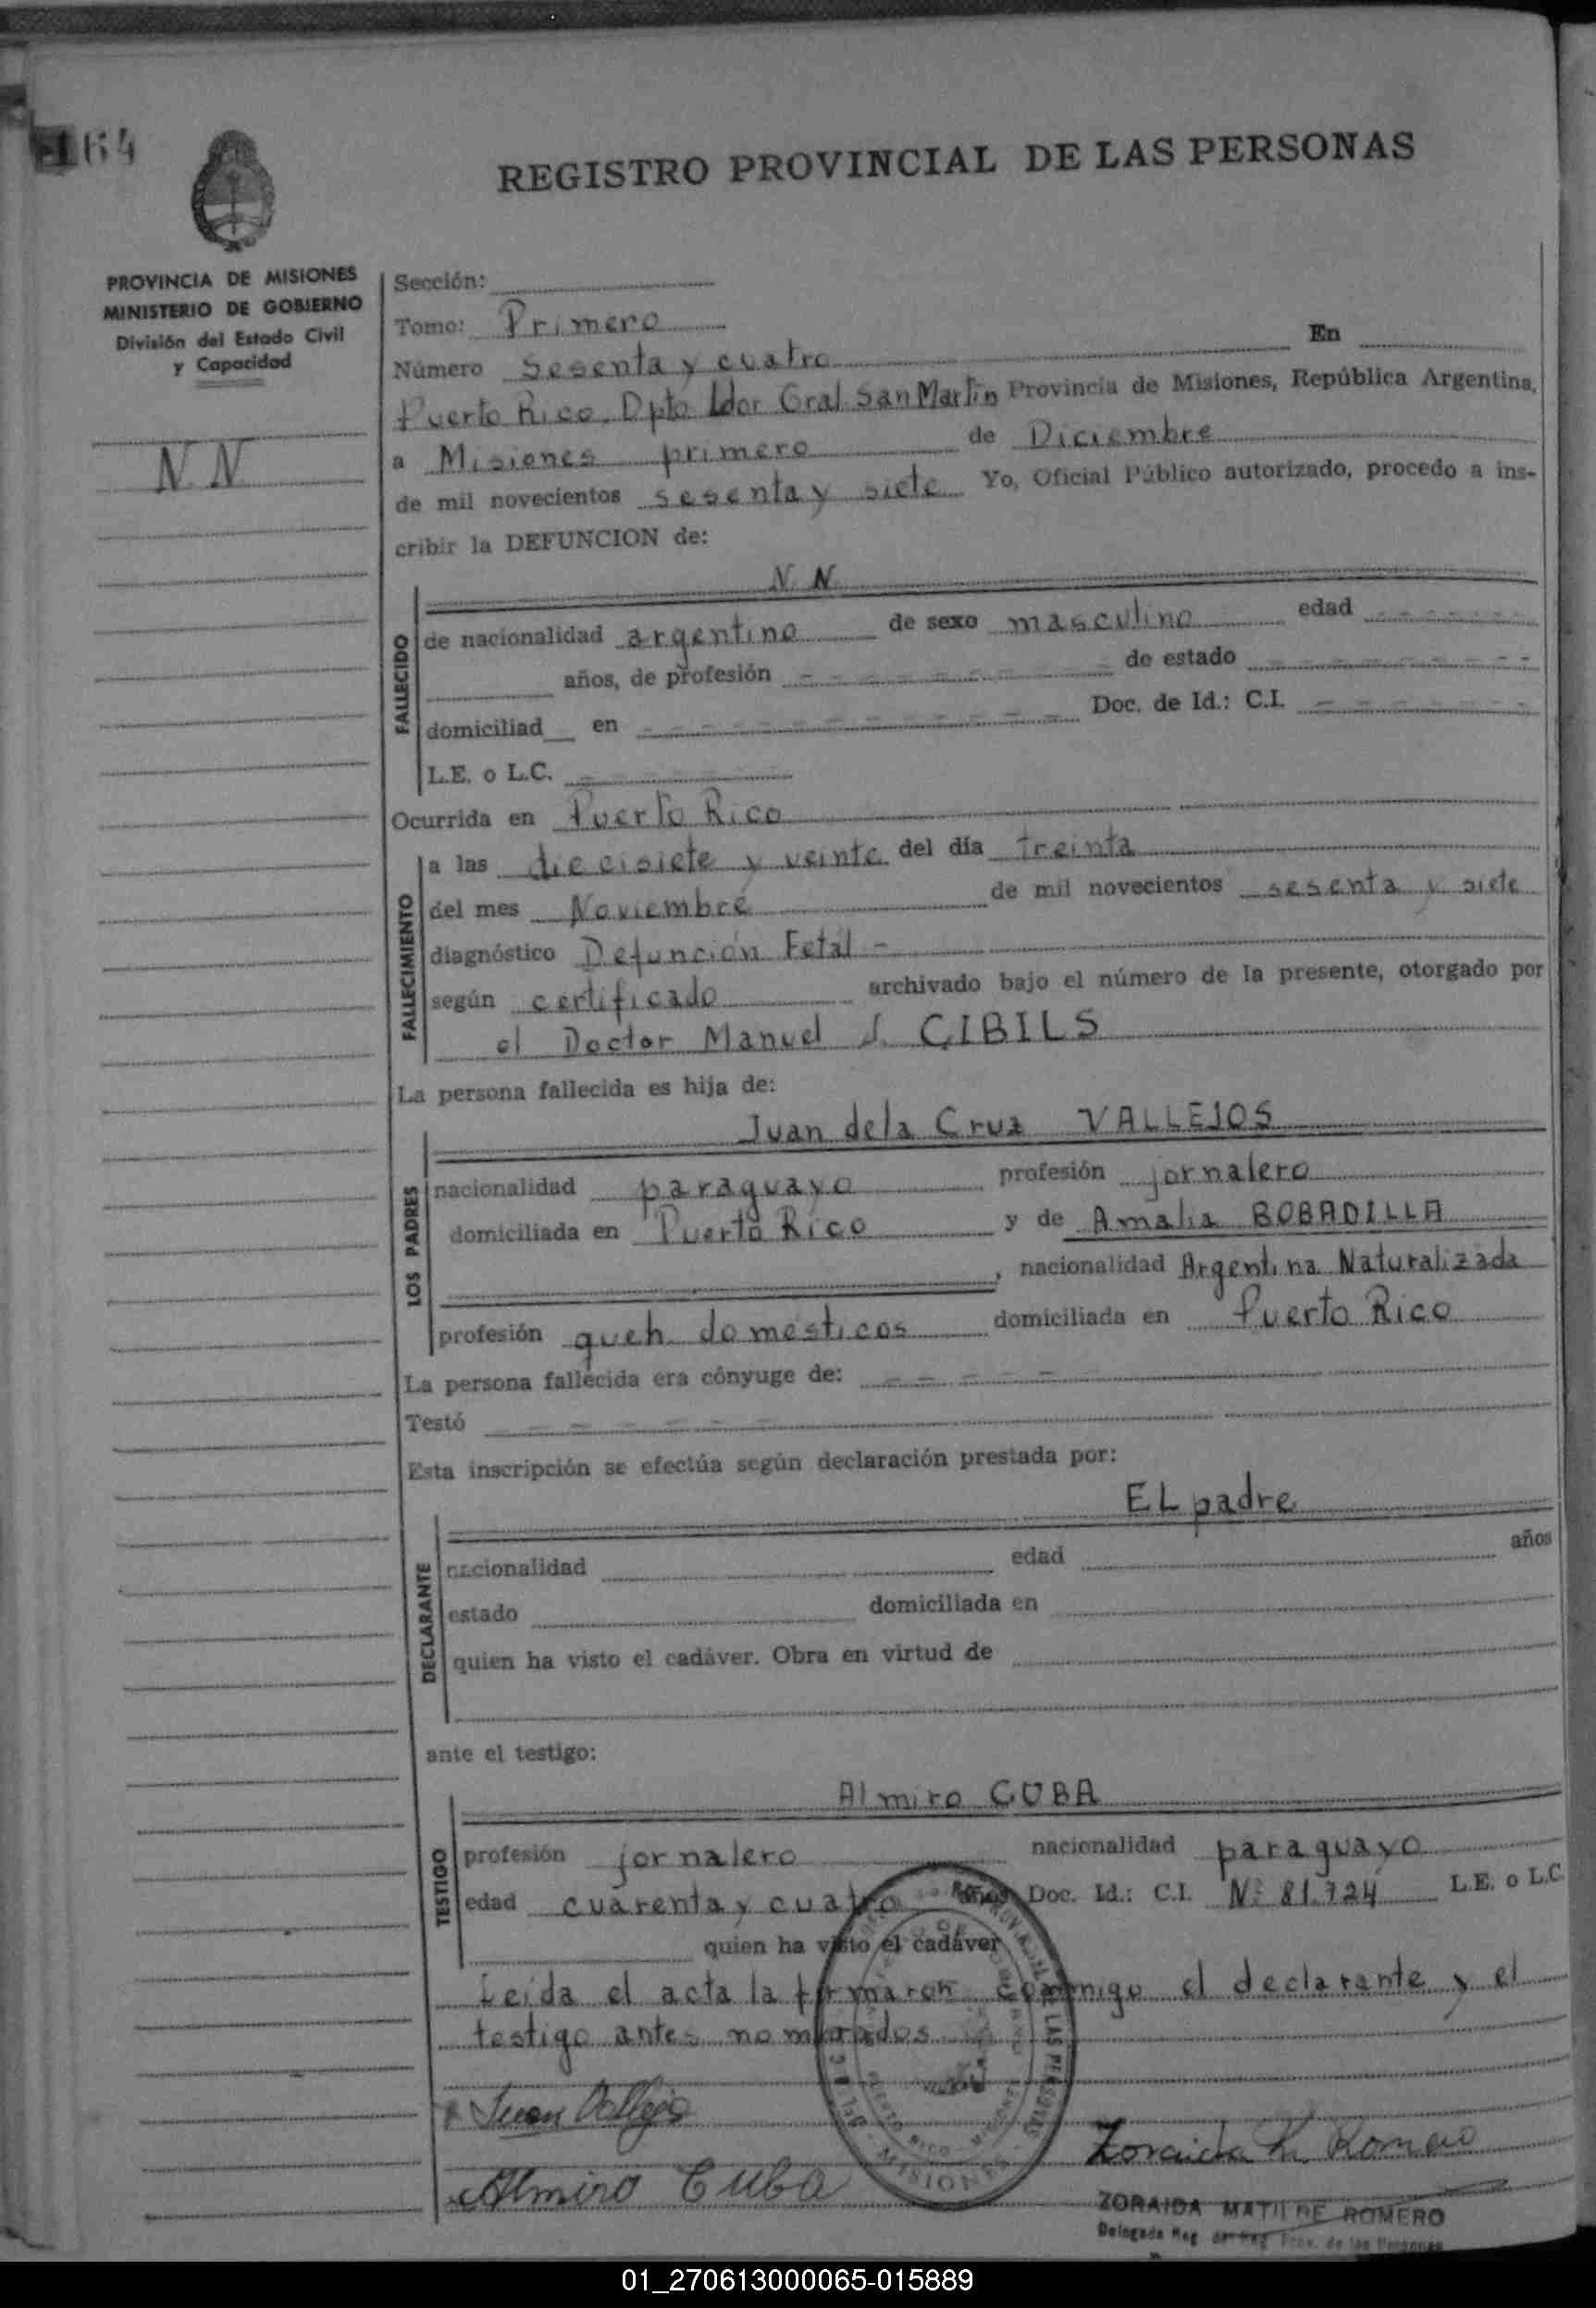 164
REGISTRO PROVINCIAL DE LAS PERSONAS
PROVINCIA DE MISIONES
MINISTERIO DE GOBIERNO
División del Estado Civil
y Capacidad
N. N
Sección:
Tomo: Primero
Número Sesenta y cuatro En
Puerto Rico, Dpto Ldor Gral San Martin Provincia de Misiones, República Argentina,
a Misiones primero de Diciembre
de mil novecientos sesenta y siete Yo, Oficial Público autorizado, procedo a ins-
cribir la DEFUNCION de:
N. N.
FALLECIDO
de nacionalidad argentino de sexo masculino edad
años, de profesión de estado
domiciliad en Doc. de Id.: C.I.
L.E. o L.C.
Ocurrida en Puerto Rico
FALLECIMIENTO
a las diecisiete y veinte del día treinta
del mes Noviembre de mil novecientos sesenta y siete
diagnóstico Defunción Fetal -
según certificado archivado bajo el número de la presente, otorgado por
el Doctor Manuel J. CIBILS
La persona fallecida es hija de:
Juan dela Cruz VALLEJOS
LOS PADRES
nacionalidad paraguayo profesión jornalero
domiciliada en Puerto Rico y de Amalia BOBADILLA
, nacionalidad Argentina Naturalizada
profesión queh. domésticos domiciliada en Puerto Rico
La persona fallecida era cónyuge de:
Testó
Esta inscripción se efectúa según declaración prestada por:
EL padre
DECLARANTE
nacionalidad edad años
estado domiciliada en
quien ha visto el cadáver. Obra en virtud de
ante el testigo:
Almiro CUBA
TESTIGO
profesión jornalero nacionalidad paraguayo
edad cuarenta y cuatro años Doc. Id.: C.I. Nº 81.724 L.E. o L.C.
quien ha visto el cadáver
Leída el acta la firmaron conmigo el declarante y el
testigo antes nombrados
Juan Vallejo
Almiro Cuba
Zoraida M. Romero
ZORAIDA MATILDE ROMERO
Delegada Reg. del Reg. Prov. de las Personas
LAS PERSONAS
PUERTO RICO - MISIONES
MISIONES
01_270613000065-015889